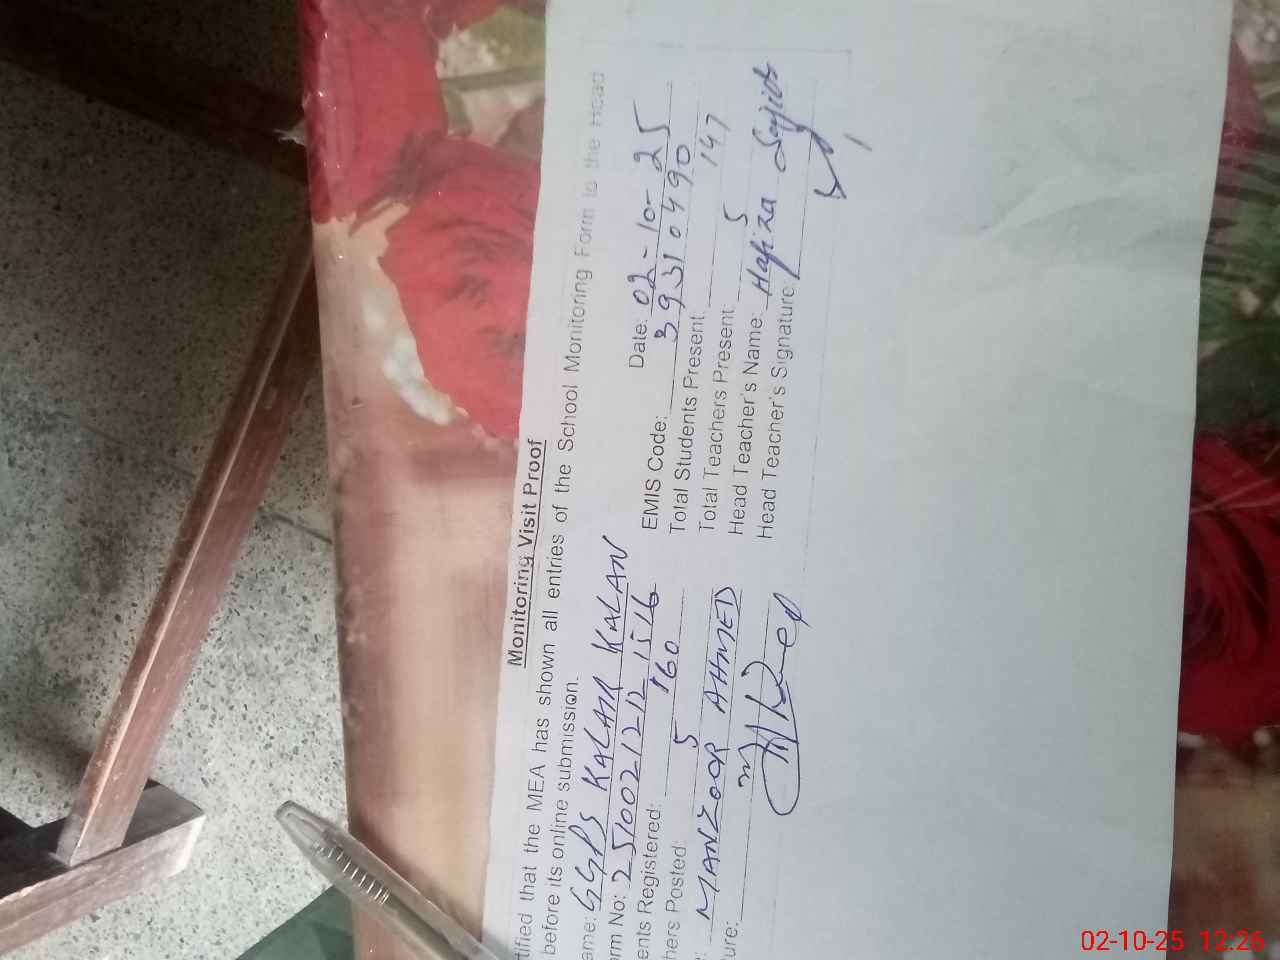 Monitoring Visit Proof
tified that the MEA has shown all entries of the School Monitoring Form to the Head
before its online submission.
ame: GGPS KALAIR KALAN Date: 02-10-25
rm No: 251002121215 16 EMIS Code: 39310490
ents Registered: 160 Total Students Present: 147
hers Posted: 5 Total Teachers Present: 5
: MANZOOR AHMED Head Teacher's Name: Hafiza Sajida
ure: Head Teacher's Signature:
02-10-25 12:26